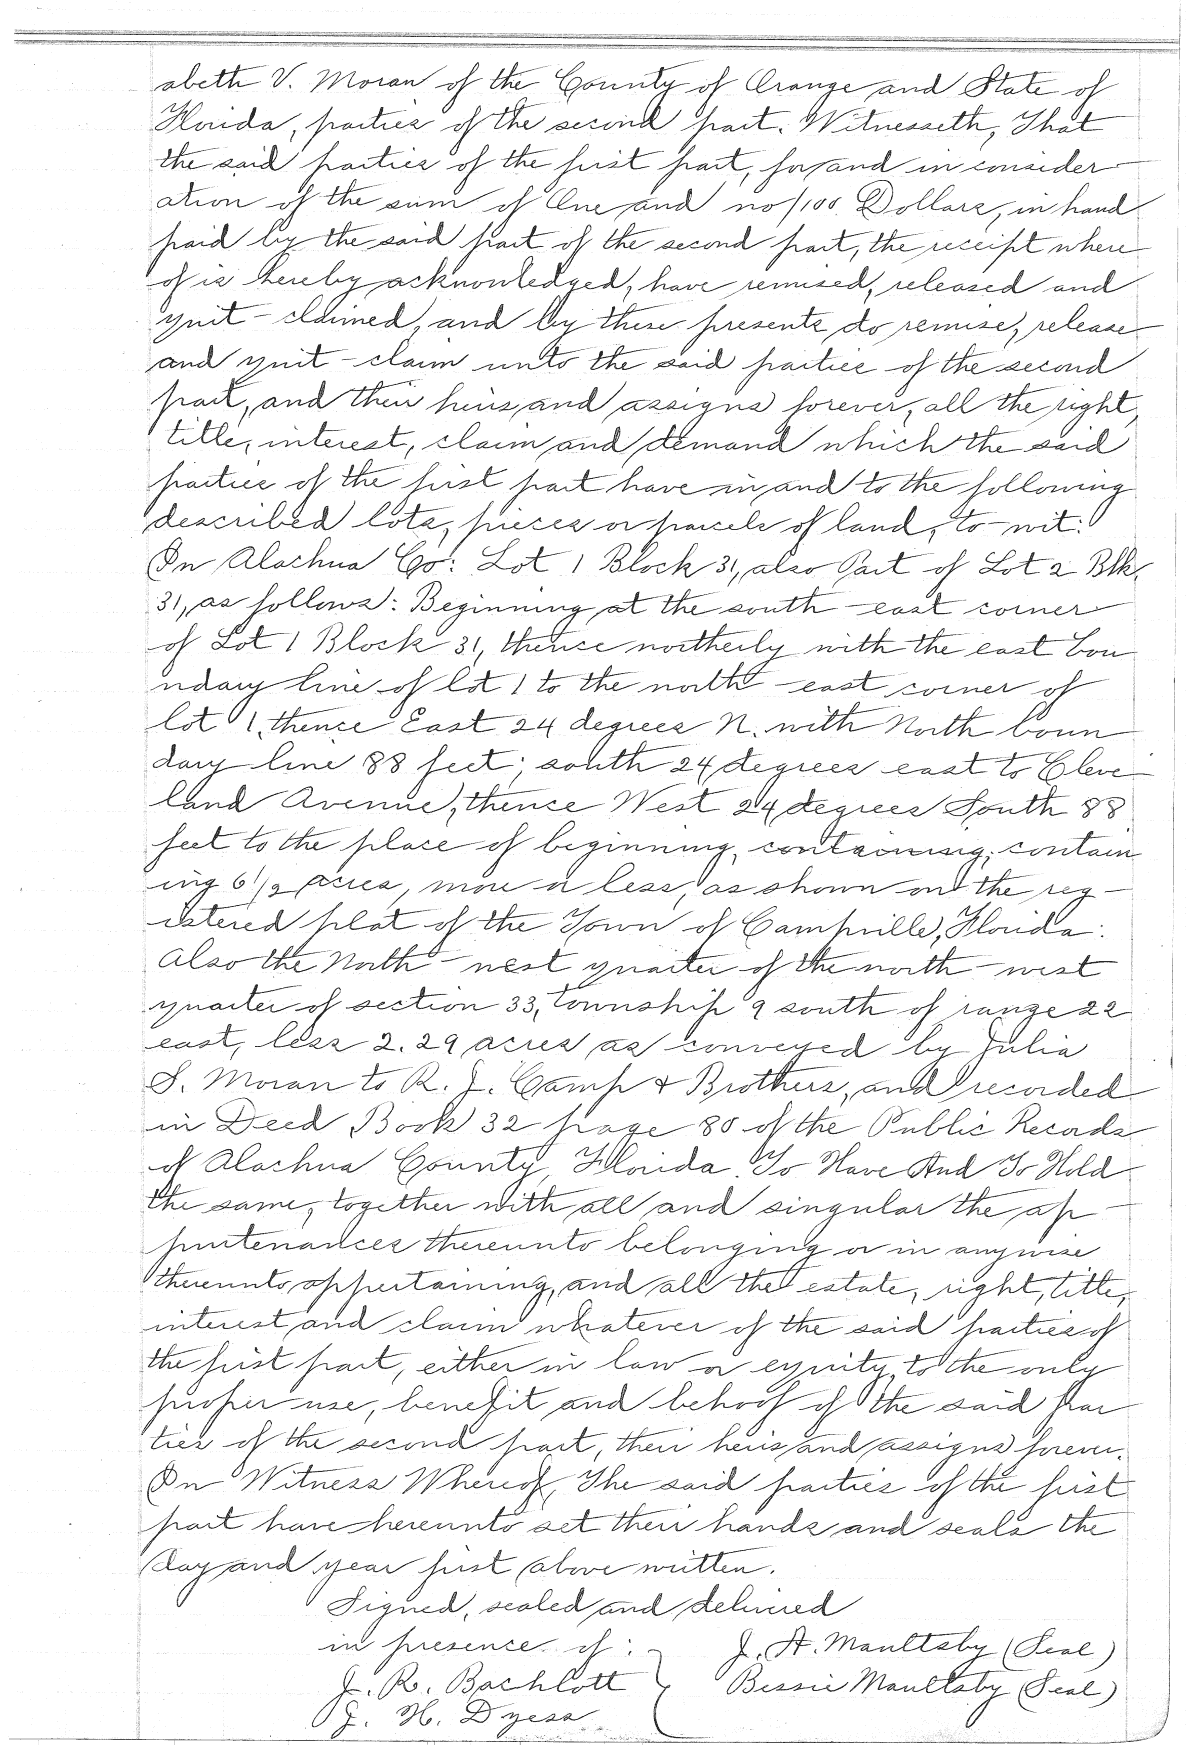 abeth V. Moran of the County of Orange and State of
Florida, parties of the second part. Witnesseth, That
the said parties of the first part, for and in consider-
ation of the sum of One and no/100 Dollars, in hand
paid by the said part of the second part, the receipt where
of is hereby acknowledged, have remised, released and
quit-claimed, and by these presents do remise, release
and quit-claim unto the said parties of the second
part, and their heirs and assigns forever, all the right,
title, interest, claim and demand which the said
parties of the first part have in and to the following
described lots, pieces or parcels of land, to-wit:
In Alachua Co: Lot 1 Block 31, also Part of Lot 2 Blk.
31, as follows: Beginning at the south-east corner
of Lot 1 Block 31, thence northerly with the east bou
ndary line of lot 1 to the north-east corner of
lot 1, thence East 24 degrees N. with North boun
dary line 88 feet; south 24 degrees east to Cleve-
land Avenue, thence West 24 degrees South 88
feet to the place of beginning, containing, contain
ing 6 1/2 acres, more or less, as shown on the reg-
istered plat of the Town of Campville, Florida.
Also the North-west quarter of the north-west
quarter of section 33, township 9 south of range 22
east, less 2.29 acres as conveyed by Julia
S. Moran to R. J. Camp & Brothers, and recorded
in Deed Book 32 page 80 of the Public Records
of Alachua County, Florida. To Have And To Hold
the same, together with all and singular the ap-
purtenances thereunto belonging or in anywise
thereunto appertaining, and all the estate, right, title,
interest and claim whatever of the said parties of
the first part, either in law or equity, to the only
proper use, benefit and behoof of the said par
ties of the second part, their heirs and assigns forever.
In Witness Whereof, The said parties of the first
part have hereunto set their hands and seals the
day and year first above written.
Signed, sealed and delivered
in presence of:
J. A. Maultsby (Seal)
J. R. Bachlott
Bessie Maultsby (Seal)
J. H. Dyess